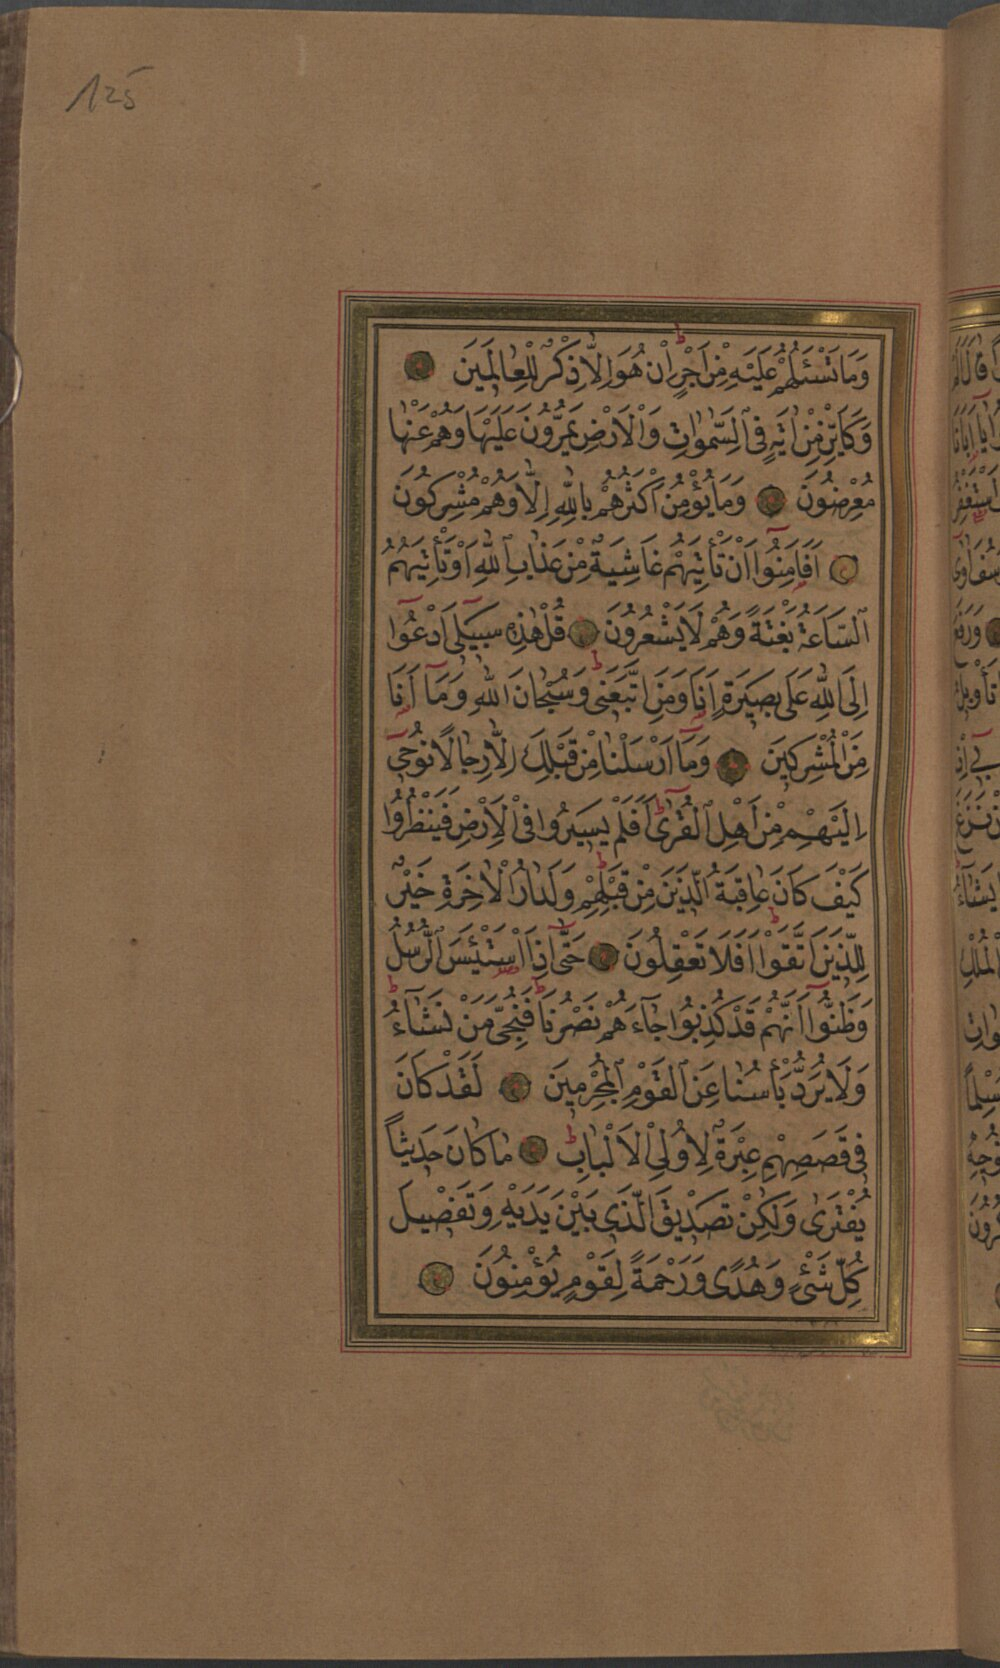 125
وَمَا تَسْـَٔلُهُمْ عَلَيْهِ مِنْ اَجْرٍ اِنْ هُوَ اِلَّا ذِكْرٌ لِلْعَالَمِينَ
وَكَاَيِّنْ مِنْ اٰيَةٍ فِى السَّمٰوَاتِ وَالْاَرْضِ يَمُرُّونَ عَلَيْهَا وَهُمْ عَنْهَا
مُعْرِضُونَ وَمَا يُؤْمِنُ اَكْثَرُهُمْ بِاللّٰهِ اِلَّا وَهُمْ مُشْرِكُونَ
اَفَاَمِنُوٓا اَنْ تَأْتِيَهُمْ غَاشِيَةٌ مِنْ عَذَابِ اللّٰهِ اَوْ تَأْتِيَهُمُ
السَّاعَةُ بَغْتَةً وَهُمْ لَا يَشْعُرُونَ قُلْ هٰذِهٖ سَبِيلٓى اَدْعُوٓا
اِلَى اللّٰهِ عَلٰى بَصِيرَةٍ اَنَا وَمَنِ اتَّبَعَنِى وَسُبْحَانَ اللّٰهِ وَمَآ اَنَا
مِنَ الْمُشْرِكِينَ وَمَآ اَرْسَلْنَا مِنْ قَبْلِكَ اِلَّا رِجَالًا نُوحٓى
اِلَيْهِمْ مِنْ اَهْلِ الْقُرٰى اَفَلَمْ يَسِيرُوا فِى الْاَرْضِ فَيَنْظُرُوا
كَيْفَ كَانَ عَاقِبَةُ الَّذِينَ مِنْ قَبْلِهِمْ وَلَدَارُ الْاٰخِرَةِ خَيْرٌ
لِلَّذِينَ اتَّقَوْا اَفَلَا تَعْقِلُونَ حَتّٰٓى اِذَا اسْتَيْـَٔسَ الرُّسُلُ
وَظَنُّوٓا اَنَّهُمْ قَدْ كُذِبُوا جَآءَهُمْ نَصْرُنَا فَنُجِّىَ مَنْ نَشَآءُ
وَلَا يُرَدُّ بَأْسُنَا عَنِ الْقَوْمِ الْمُجْرِمِينَ لَقَدْ كَانَ
فِى قَصَصِهِمْ عِبْرَةٌ لِاُولِى الْاَلْبَابِ مَا كَانَ حَدِيثًا
يُفْتَرٰى وَلٰكِنْ تَصْدِيقَ الَّذِى بَيْنَ يَدَيْهِ وَتَفْصِيلَ
كُلِّ شَىْءٍ وَهُدًى وَرَحْمَةً لِقَوْمٍ يُؤْمِنُونَ